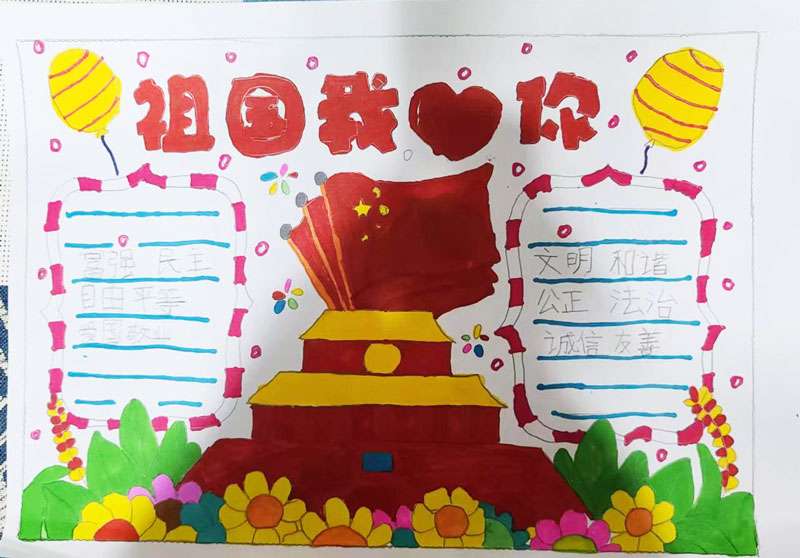 祖国我❤你
富强 民主
自由 平等
爱国 敬业
文明 和谐
公正 法治
诚信 友善